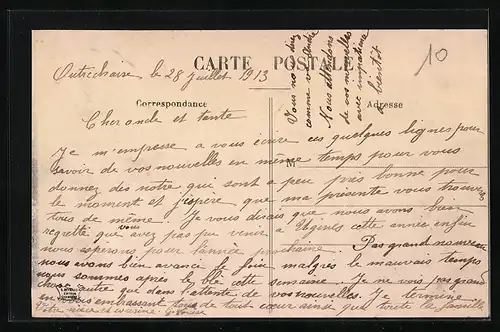 CARTE POSTALE
Correspondance
Adresse
M
10
Outrechaise, le 28 juillet 1913
Cher oncle et tante
Je m'empresse a vous écrire ces quelques lignes pour
savoir de vos nouvelles en même temps pour vous
donnez des notre que sont a peu près bonne pour
le moment et j'espère que ma présente vous trouvez
tous de même. Je vous disais que nous avons bien
regretté que vous avez pas pu venir a Ugents cette année enfin
nous espérons pour l'année prochaine. Pas grand nouveau
nous avons bien avance le foin malgré le mauvais temps
nous sommes après le blé cette semaine. Je ne vois pas grand
chose autre que dans l'attente de vos nouvelles. Je termine
en vous embrassant tous de tout cœur ainsi que toute la famille
Votre nièce et cousine
Vous nous direz
comme vous
Nous attendons
de vos nouvelles
avec impatience
a bientôt